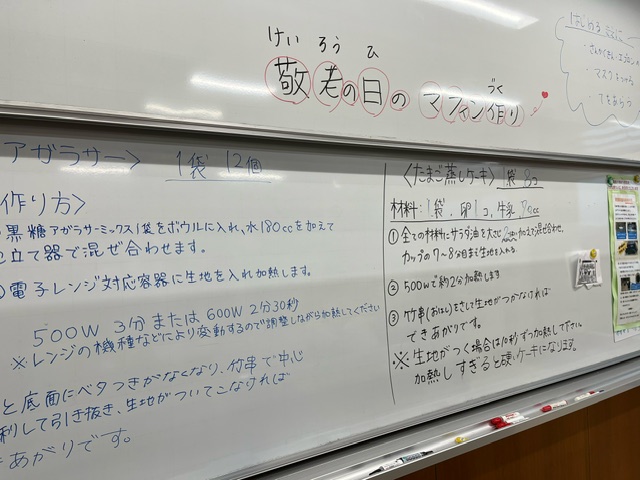 けいろうひ
敬老の日のマフィン作り
づく
はじめる まえに
・さんかくきん・エプロン
・マスクをつける
・てをあらう
アガラサー〉 1袋 12個
作り方〉
黒糖アガラサーミックス1袋をボウルに入れ、水180ccを加えて
立て器で混ぜ合わせます。
電子レンジ対応容器に生地を入れ加熱します。
500W 3分 または 600W 2分30秒
※レンジの機種などにより変動するので調整しながら加熱してください
と底面にベタつきがなくなり、竹串で中心
刺して引き抜き、生地がついてこなければ
あがりです。
〈たまご蒸しケーキ〉 1袋 8コ
材料:1袋、卵1コ、牛乳 cc
① 全ての材料にサラダ油を大さじ 加えて混ぜ合わせ、
カップの7〜8分目まで生地を入れる
② 500Wで約2分加熱します
③ 竹串(おはし)をさして生地がつかなければ
できあがりです。
※ 生地がつく場合は10秒ずつ加熱して下さい。
加熱しすぎると硬いケーキになります。